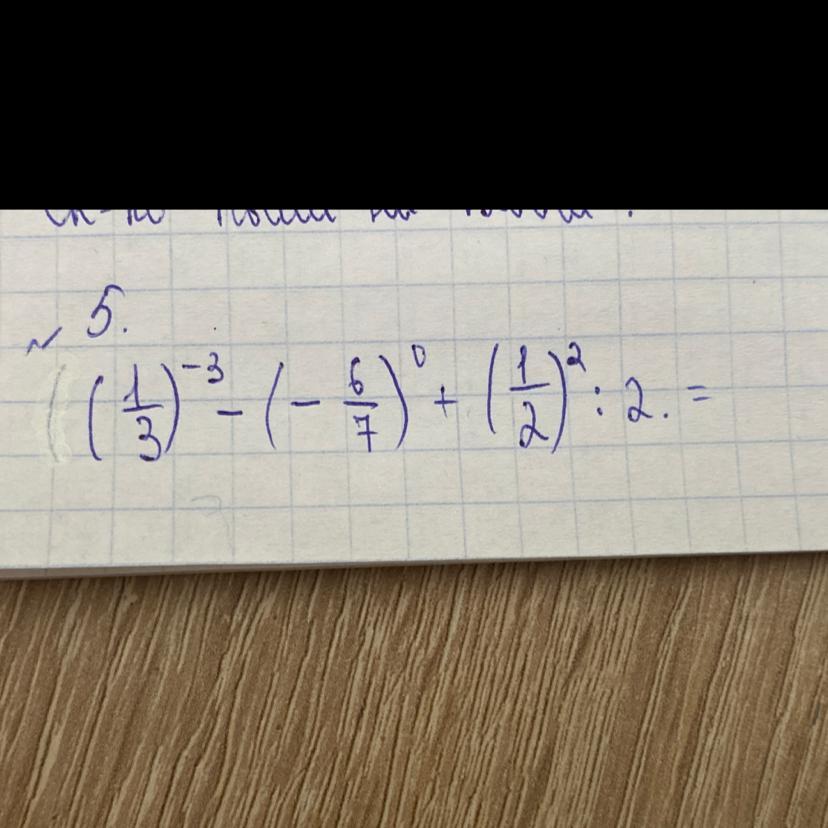 № 5.
(1/3)⁻³ - (- 6/7)⁰ + (1/2)² : 2. =